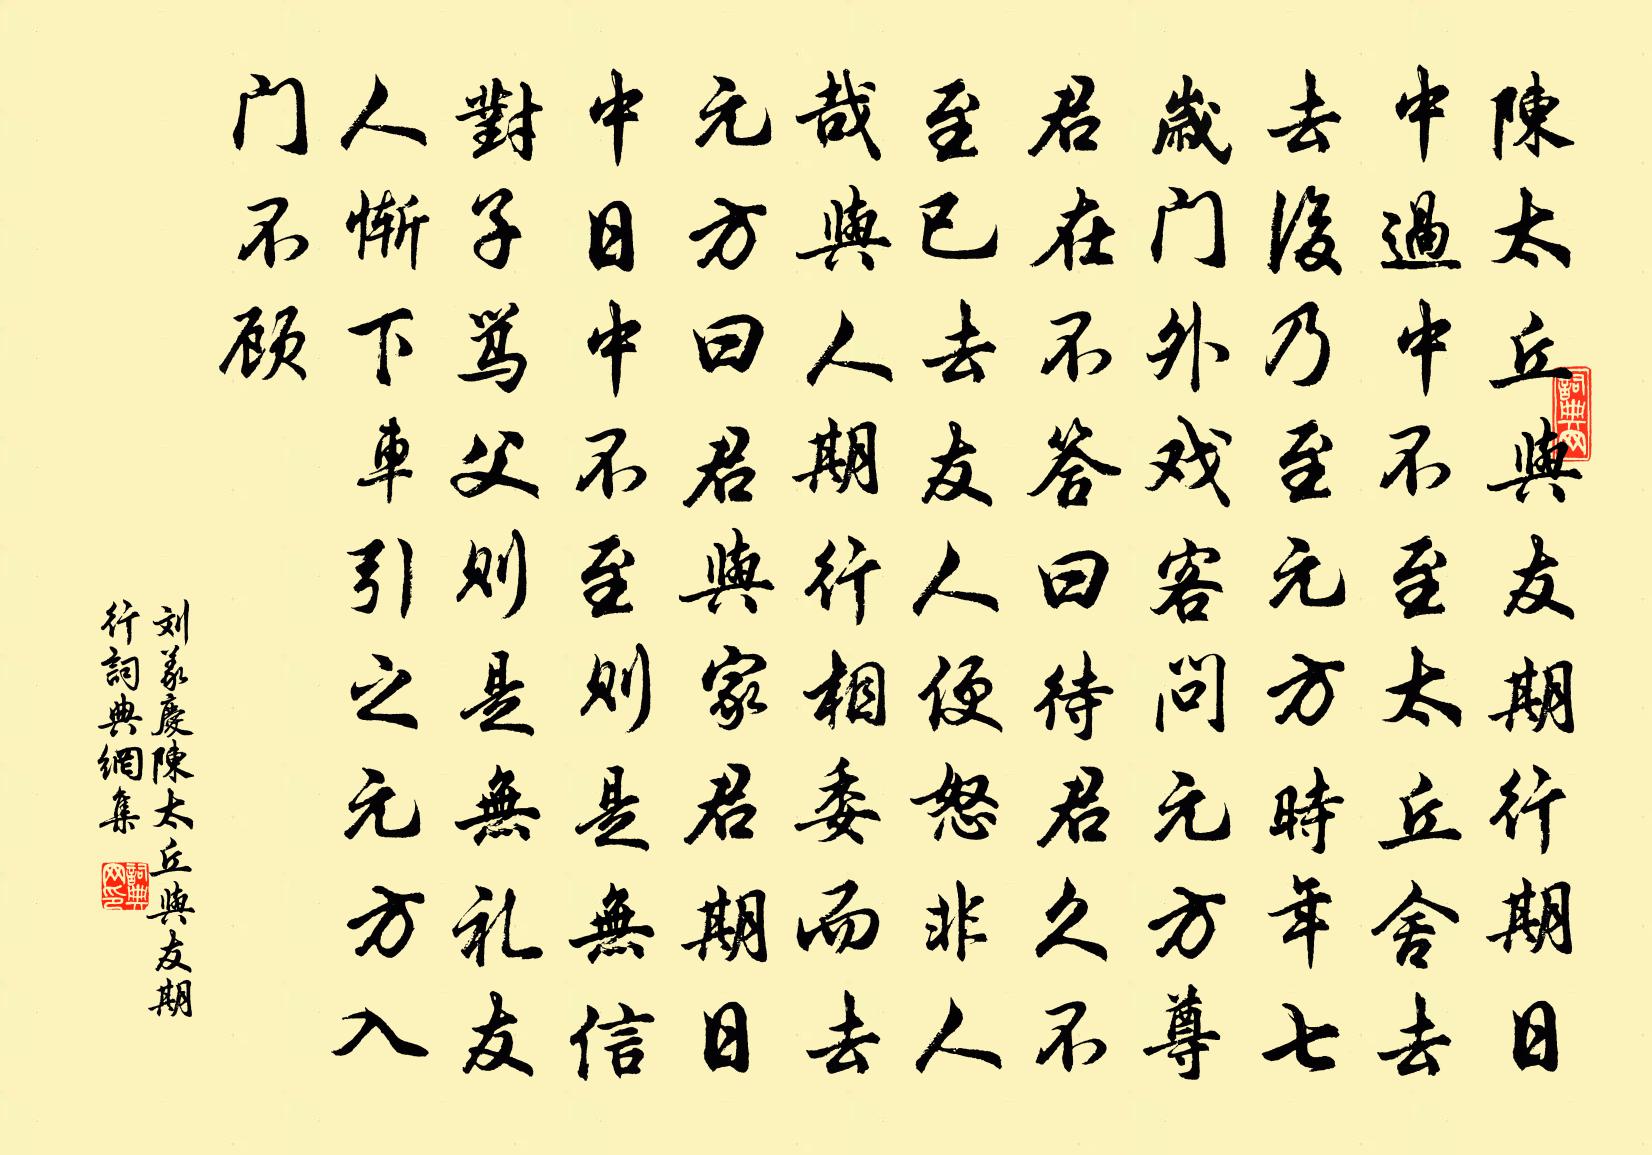 陳太丘與友期行期日
中過中不至太丘舍去
去後乃至元方時年七
歲门外戏客问元方尊
君在不答曰待君久不
至已去友人便怒非人
哉與人期行相委而去
元方曰君與家君期日
中日中不至则是無信
對子骂父则是無礼友
人惭下車引之元方入
门不顾
刘義慶陳太丘與友期
行詞典網集
詞典网
詞典网印